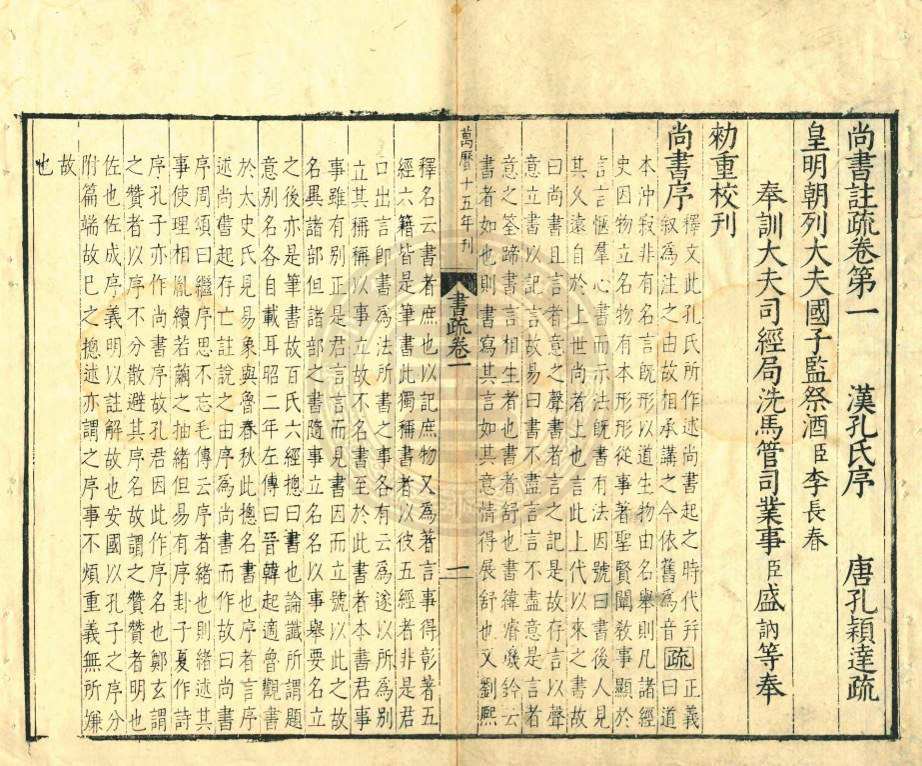 尚書註疏卷第一　漢孔氏序　唐孔穎達疏
皇明朝列大夫國子監祭酒臣李長春
奉訓大夫司經局洗馬管司業事臣盛訥等奉
勑重校刊
尚書序
釋文此孔氏所作述尚書起之時代并
叙爲注之由故相承講之今依舊爲音
疏
正義曰道
本沖寂非有名言旣形以道生物由名舉則凡諸經
史因物立名物有本形形從事著聖賢闡敎事顯於
言言愜羣心書而示法旣書有法因號曰書後人見
其久遠自於上世尚者上也言此上代以來之書故
曰尚書且言者意之聲書者言之記是故存言以聲
意立書以記言故易曰書不盡言言不盡意是言者
意之筌蹄書言相生者也書者舒也書緯璿璣鈐云
書者如也則書寫其言如其意情得展舒也又劉熙
萬曆十五年刊
書疏卷一
一
釋名云書者庶也以記庶物又爲著言事得彰著五
經六籍皆是筆書此獨稱書者以彼五經者非是君
口出言卽書爲法所書之事各有云爲遂以所爲別
立其稱稱以事立故不名書至於此書者本書君事
事雖有別正是君言言而見書因而立號以此之故
名異諸部但諸部之書隨事立名名以事舉要名立
之後亦是筆書故百氏六經摠曰書也論讖所謂題
意別名各自載耳昭二年左傳曰晉韓起適魯觀書
於大史氏見易象與魯春秋此摠名書也序者言序
述尚書起存亡註說之由序爲尚書而作故曰尚書
序周頌曰繼序思不忘毛傳云序者緒也則緒述其
事使理相胤續若繭之抽緒但易有序卦子夏作詩
序孔子亦作尚書序故孔君因此作序名也鄭玄謂
之贊者以序不分散避其序名故謂之贊贊者明也
佐也佐成序義明以註解故也安國以孔子之序分
附篇端故已之摠述亦謂之序事不煩重義無所嫌
故
也